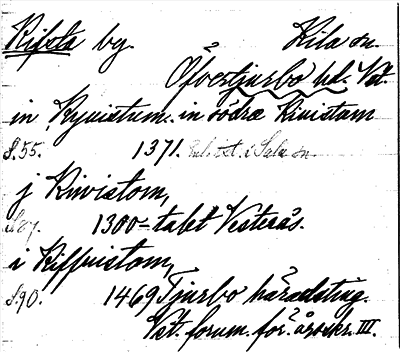 Kifsta by. Kila sn.
Öfvertjurbo hd. Vst.
in Kyuistum. in södra Kiuistam
S. 55. 1371. i Sala sn
j Kiuistom,
S. 87. 1300-talet Vesterås.
i Kiffuistom,
S. 90. 1469 Tjurbo häradsting.
Vst. fornm. för. årsskr. III.